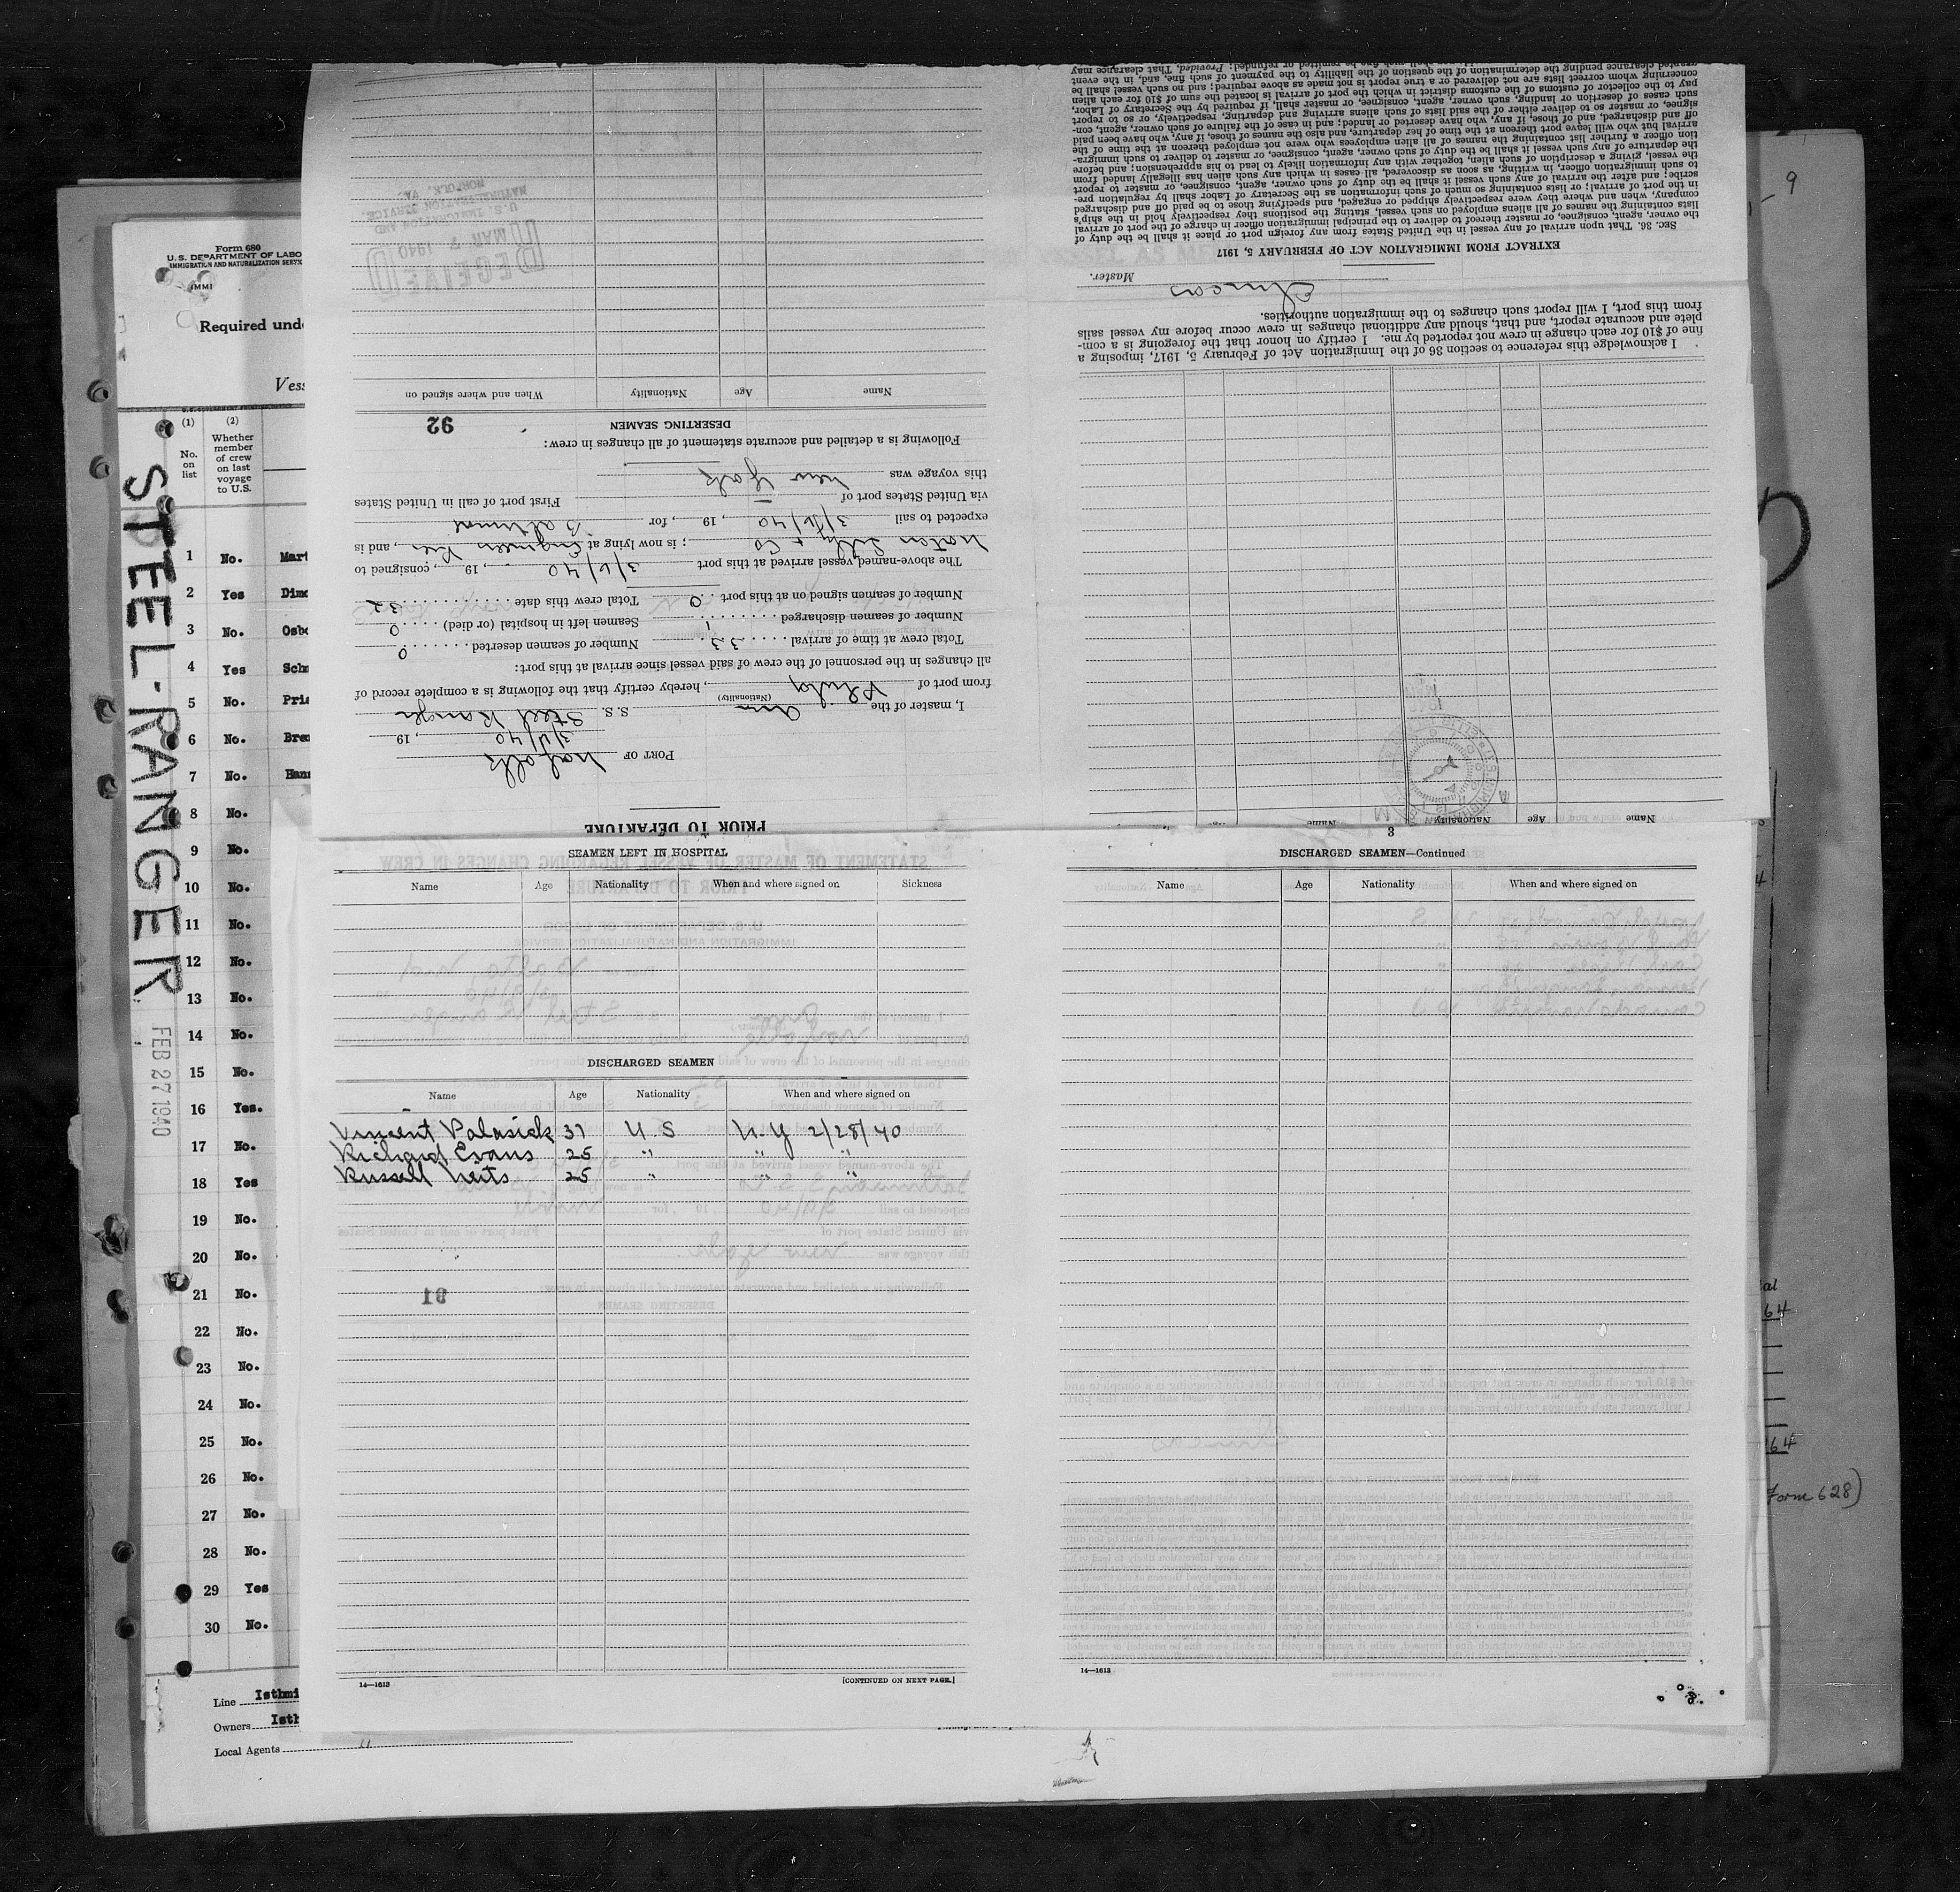 9
Form 680
U.S. DEPARTMENT OF LABO
IMMIGRATION AND NATURALIZATION SERVI
IMMI
Required unde
Vess
(1) (2)
No. on list
Whether member of crew on last voyage to U.S.
1 No. Mart
2 Yes Dimo
3 No. Osbo
4 Yes Schm
5 No. Pria
6 No. Bren
7 No. Hann
8 No.
9 No.
10 No.
11 No.
12 No.
13 No.
14 No.
15 No.
16 Yes.
17 No.
18 Yes
19 No.
20 No.
21 No.
22 No.
23 No.
24 No.
25 No.
26 No.
27 No.
28 No.
29 Yes
30 No.
Line Isthmi
Owners Isth
Local Agents "
STEEL-RANGER
FEB 27 1940
PRIOR TO DEPARTURE
PORT OF Norfolk
3/6/40, 19
I, master of the Am S. S. Steel Ranger
(Nationality)
from port of Phila, hereby certify that the following is a complete record of
all changes in the personnel of the crew of said vessel since arrival at this port:
Total crew at time of arrival 33 Number of seamen deserted 0
Number of seamen discharged 1 Seamen left in hospital (or died) 0
Number of seamen signed on at this port 0 Total crew this date 32
The above-named vessel arrived at this port 3/6/40, 19, consigned to
Norton Lilly & Co; is now lying at Engineers Pier, and is
expected to sail 3/6/40, 19, for Baltimore
via United States port of — First port of call in United States
this voyage was New York
Following is a detailed and accurate statement of all changes in crew:
DESERTING SEAMEN
92
Name Age Nationality When and where signed on
RECEIVED
MAR 7 1940
U. S. IMMIGRATION AND
NATURALIZATION SERVICE
NORFOLK, VA.
3
Name Age Nationality Name Age
I acknowledge this reference to section 36 of the Immigration Act of February 5, 1917, imposing a
fine of $10 for each change in crew not reported by me. I certify on honor that the foregoing is a com-
plete and accurate report, and that, should any additional changes in crew occur before my vessel sails
from this port, I will report such changes to the immigration authorities.
Master.
EXTRACT FROM IMMIGRATION ACT OF FEBRUARY 5, 1917
SEC. 36. That upon arrival of any vessel in the United States from any foreign port or place it shall be the duty of
the owner, agent, consignee, or master thereof to deliver to the principal immigration officer in charge of the port of arrival
lists containing the names of all aliens employed on such vessel, stating the positions they respectively hold in the ship's
company, when and where they were respectively shipped or engaged, and specifying those to be paid off and discharged
in the port of arrival; or lists containing so much of such information as the Secretary of Labor shall by regulation pre-
scribe; and after the arrival of any such vessel it shall be the duty of such owner, agent, consignee, or master to report
to such immigration officer, in writing, as soon as discovered, all cases in which any such alien has illegally landed from
the vessel, giving a description of such alien, together with any information likely to lead to his apprehension; and before
the departure of any such vessel it shall be the duty of such owner, agent, consignee, or master to deliver to such immigra-
tion officer a further list containing the names of all alien employees who were not employed thereon at the time of the
arrival but who will leave port thereon at the time of her departure, and also the names of those, if any, who have been paid
off and discharged, and of those, if any, who have deserted or landed; and in case of the failure of such owner, agent, con-
signee, or master so to deliver either of the said lists of such aliens arriving and departing, respectively, or so to report
such cases of desertion or landing, such owner, agent, consignee, or master shall, if required by the Secretary of Labor,
pay to the collector of customs of the customs district in which the port of arrival is located the sum of $10 for each alien
concerning whom correct lists are not delivered or a true report is not made as above required; and no such vessel shall be
granted clearance pending the determination of the question of the liability to the payment of such fine, and, in the event
SEAMEN LEFT IN HOSPITAL
Name Age Nationality When and where signed on Sickness
DISCHARGED SEAMEN
Name Age Nationality When and where signed on
Vincent Palasick 31 U.S N.Y 2/28/40
Richard Evans 25 " " "
Russell Neits 25 " " "
91
14—1613 [CONTINUED ON NEXT PAGE.]
DISCHARGED SEAMEN—Continued
Name Age Nationality When and where signed on
14—1613
al
64
164
Form 628)